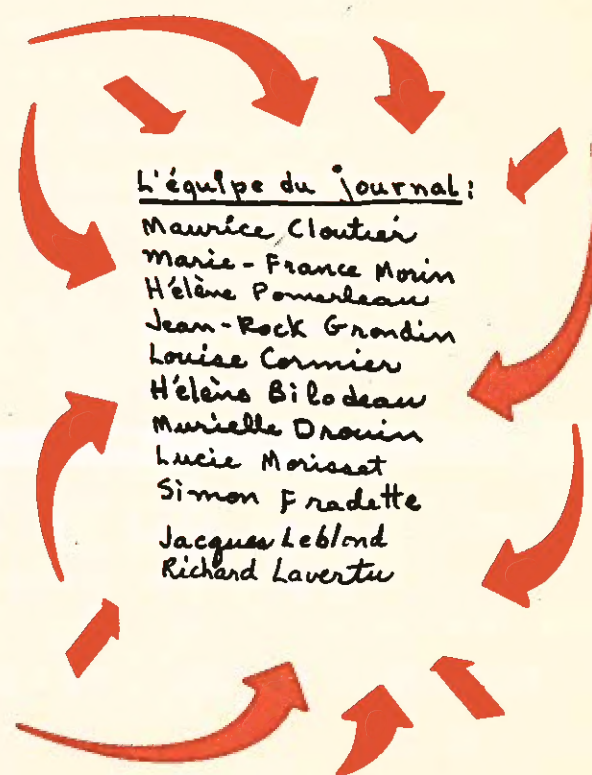 L'équipe du journal:
Maurice Cloutier
Marie-France Morin
Hélène Pomerleau
Jean-Rock Grondin
Louise Cormier
Hélène Bilodeau
Murielle Drouin
Lucie Morisset
Simon Fradette
Jacques Leblond
Richard Lavertu